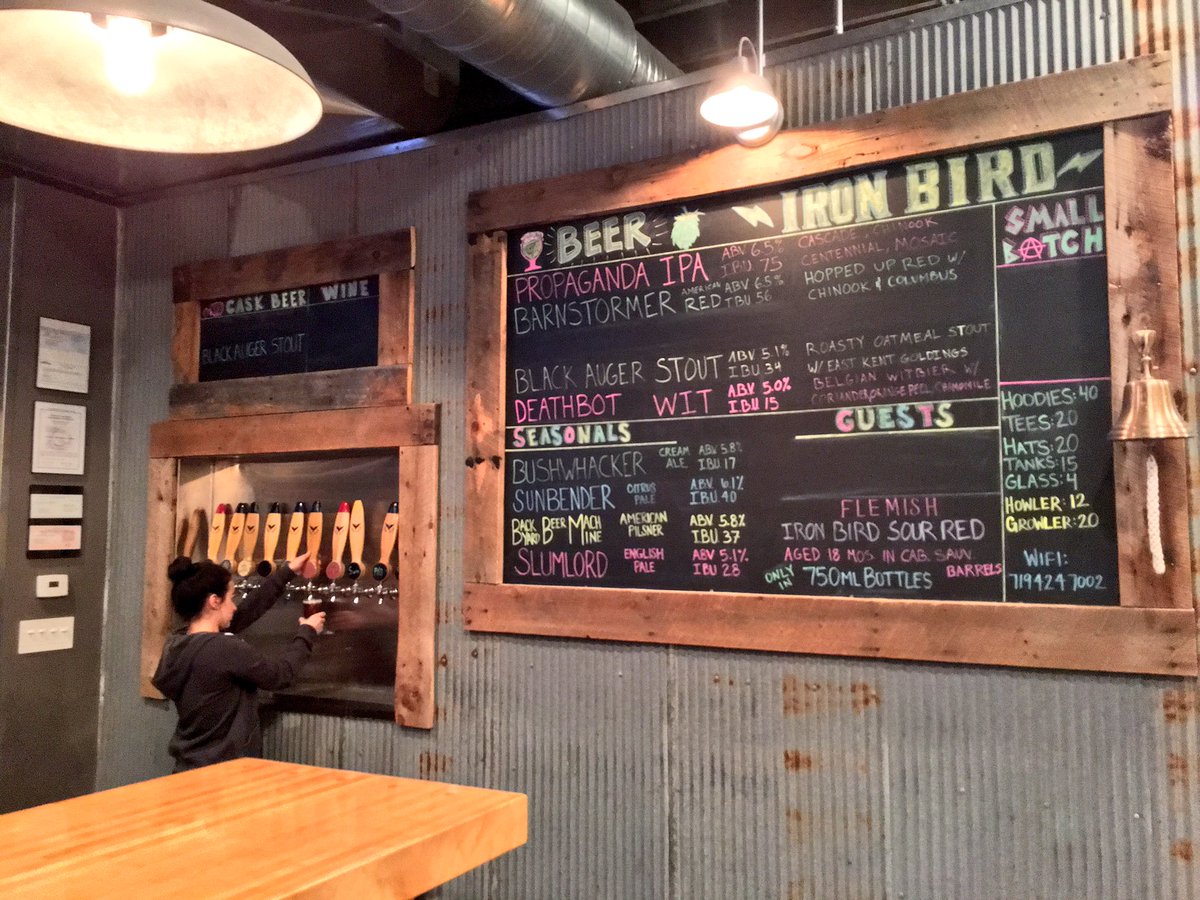 CASK BEER WINE
BLACK AUGER STOUT
BEER IRON BIRD
PROPAGANDA IPA ABV 6.5% IBU 75
CASCADE, CHINOOK
CENTENNIAL, MOSAIC
BARNSTORMER AMERICAN RED ABV 6.5% IBU 56
HOPPED UP RED W/
CHINOOK & COLUMBUS
BLACK AUGER STOUT ABV 5.1% IBU 34
ROASTY OATMEAL STOUT
W/ EAST KENT GOLDINGS
DEATHBOT WIT ABV 5.0% IBU 15
BELGIAN WITBIER W/
CORIANDER, ORANGE PEEL, CHAMOMILE
SEASONALS
BUSHWHACKER CREAM ALE ABV 5.8% IBU 17
SUNBENDER CITRUS PALE ABV 6.1% IBU 40
BACK YARD BEER MACHINE AMERICAN PILSNER ABV 5.8% IBU 37
SLUMLORD ENGLISH PALE ABV 5.1% IBU 28
GUESTS
FLEMISH
IRON BIRD SOUR RED
AGED 18 MOS. IN CAB. SAUV.
BARRELS
ONLY IN 750ML BOTTLES
SMALL
BATCH
HOODIES: 40
TEES: 20
HATS: 20
TANKS: 15
GLASS: 4
HOWLER: 12
GROWLER: 20
WIFI:
7194247002